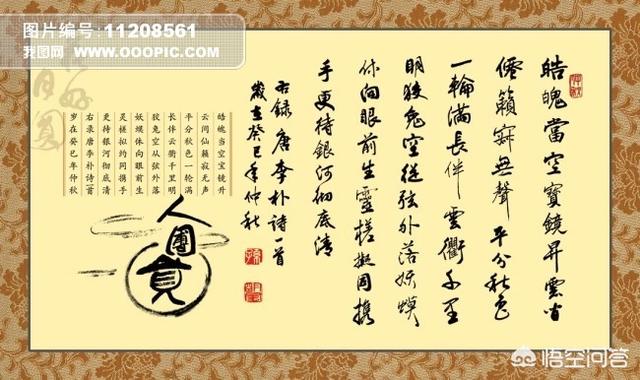 图片编号:11208561
我图网 WWW.OOOPIC.COM
皓魄當空寶鏡昇雲間
僊籟寂無聲平分秋色
一輪滿長伴雲衢千里
明狡兔空從弦外落妖蟆
休向眼前生靈槎擬同攜
手更待銀河彻底清
右録唐李朴詩一首
歲在癸巳年仲秋
皓魄当空宝镜升
云间仙籁寂无声
平分秋色一轮满
长伴云衢千里明
狡兔空从弦外落
妖蟆休向眼前生
灵槎拟约同携手
更待银河彻底清
右录唐李朴诗一首
岁在癸巳年仲秋
悟空问答